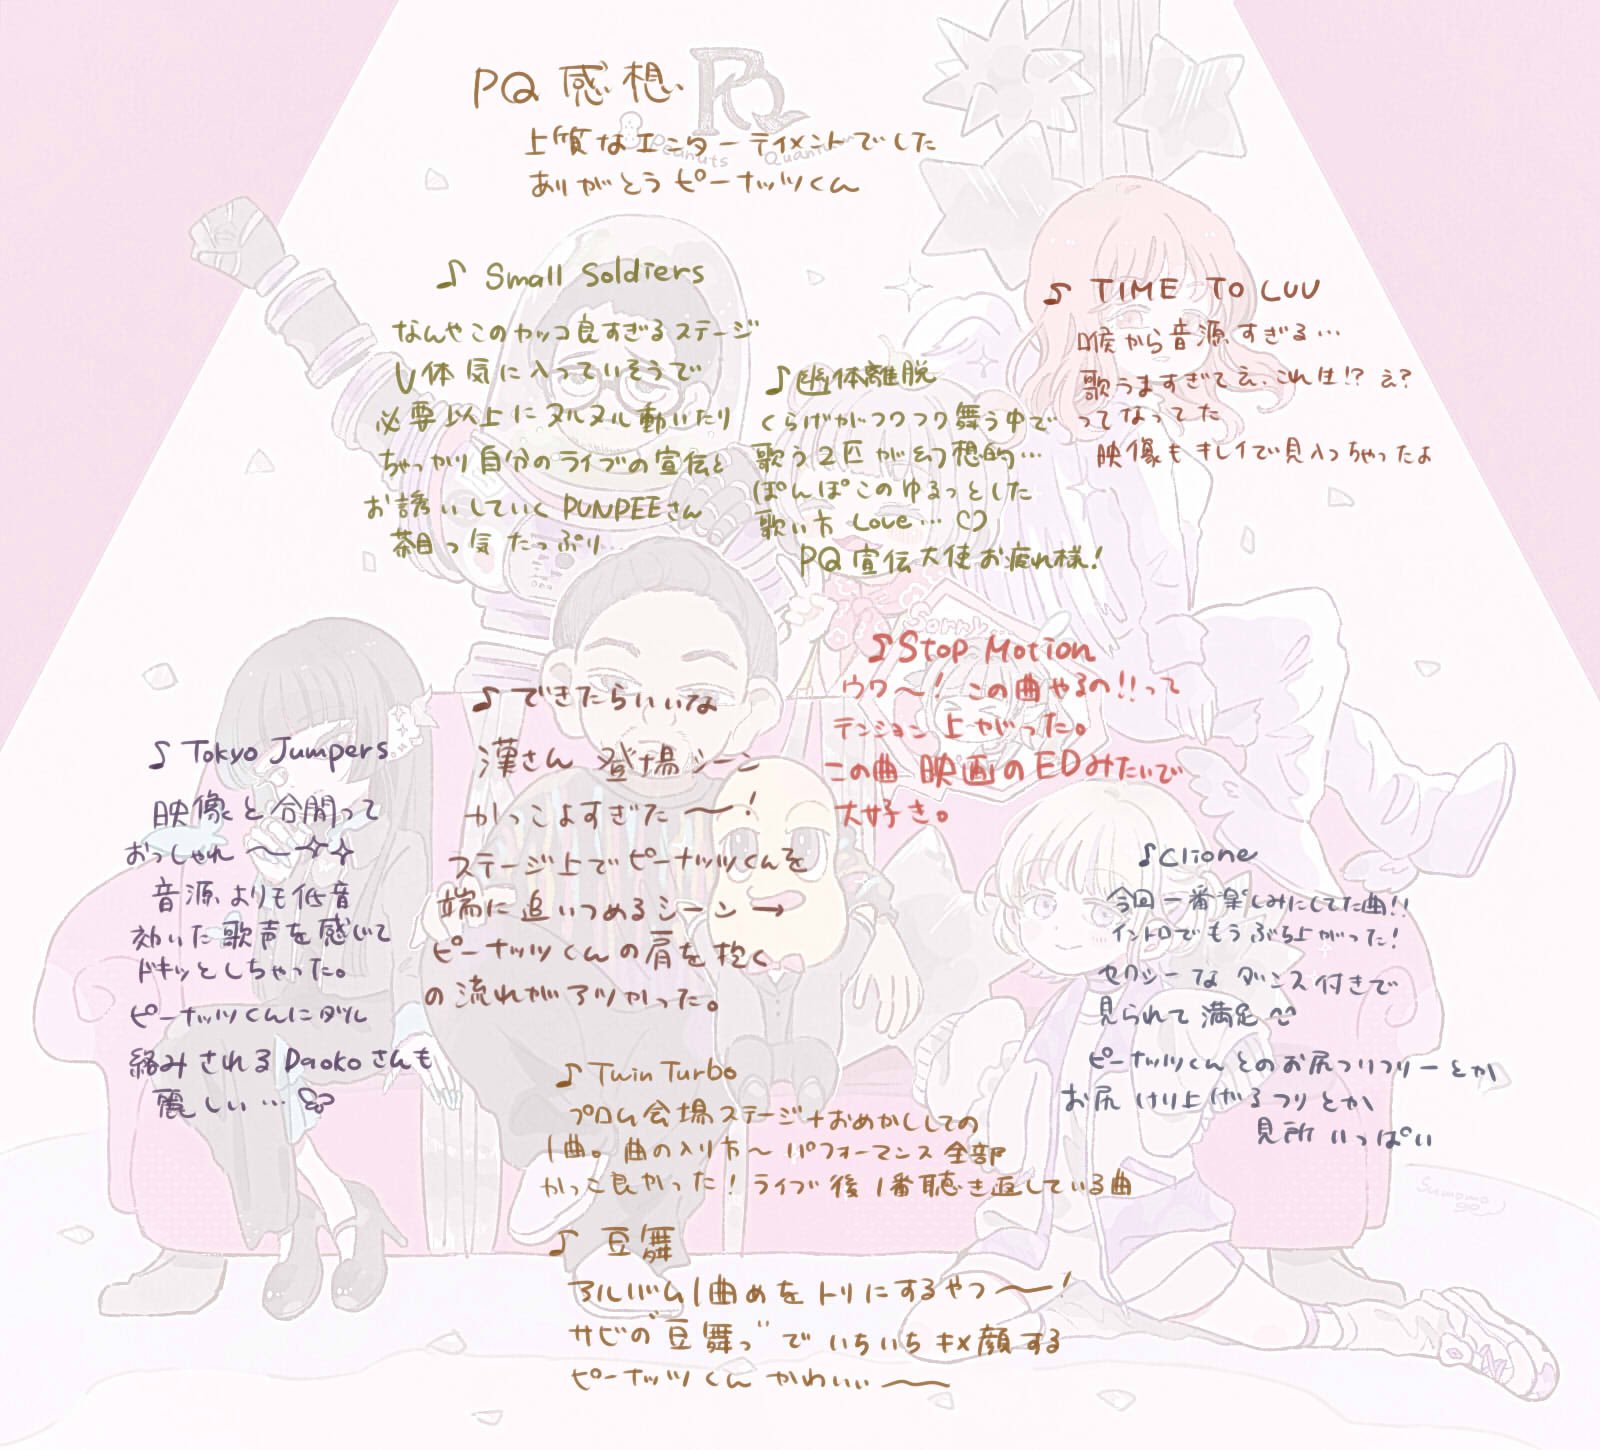 PQ 感想
PQ
Peanuts Quantum
上質なエンターテイメントでした
ありがとうピーナッツくん
♪ Small Soldiers
なんやこのカッコ良すぎるステージ
V体気に入っていそうで
必要以上にヌルヌル動いたり
ちゃっかり自分のライブの宣伝と
お誘いしていくPUNPEEさん
茶目っ気たっぷり
♪幽体離脱
くらげがフワフワ舞う中で
歌う2匹が幻想的…
ぽんぽこのゆるっとした
歌い方 Love…♡
PQ宣伝大使お疲れ様!
♪ TIME TO LUV
喉から音源すぎる…
歌うますぎてえ、これ生!? え?
ってなってた
映像もキレイで見入っちゃったよ
Sorry
♪Stop Motion
ウワ〜!この曲やるの!!って
テンション上がった。
この曲 映画のEDみたいで
大好き。
♪ できたらいいな
漢さん 登場シーン
かっこよすぎた〜!
ステージ上でピーナッツくんを
端に追いつめるシーン→
ピーナッツくんの肩を抱く
の流れがアツかった。
♪ Tokyo Jumpers
映像と合間って
おっしゃれ〜✧✧
音源よりも低音
効いた歌声を感じて
ドキッとしちゃった。
ピーナッツくんにダル
絡みされるDaokoさんも
麗しい…
♪Clione
今回一番楽しみにしてた曲!!
イントロでもうぶち上がった!
セクシーなダンス付きで
見られて満足
ピーナッツくんとのお尻フリフリーとか
お尻けり上げるフリとか
見所いっぱい
♪Twin Turbo
プロム会場ステージ+おめかししての
1曲。曲の入り方〜パフォーマンス全部
かっこ良かった!ライブ後1番聴き直している曲
♪ 豆舞
アルバム1曲めをトリにするやつ〜!
サビの"豆舞っ"でいちいちキメ顔する
ピーナッツくん かわいい〜
Sumomo